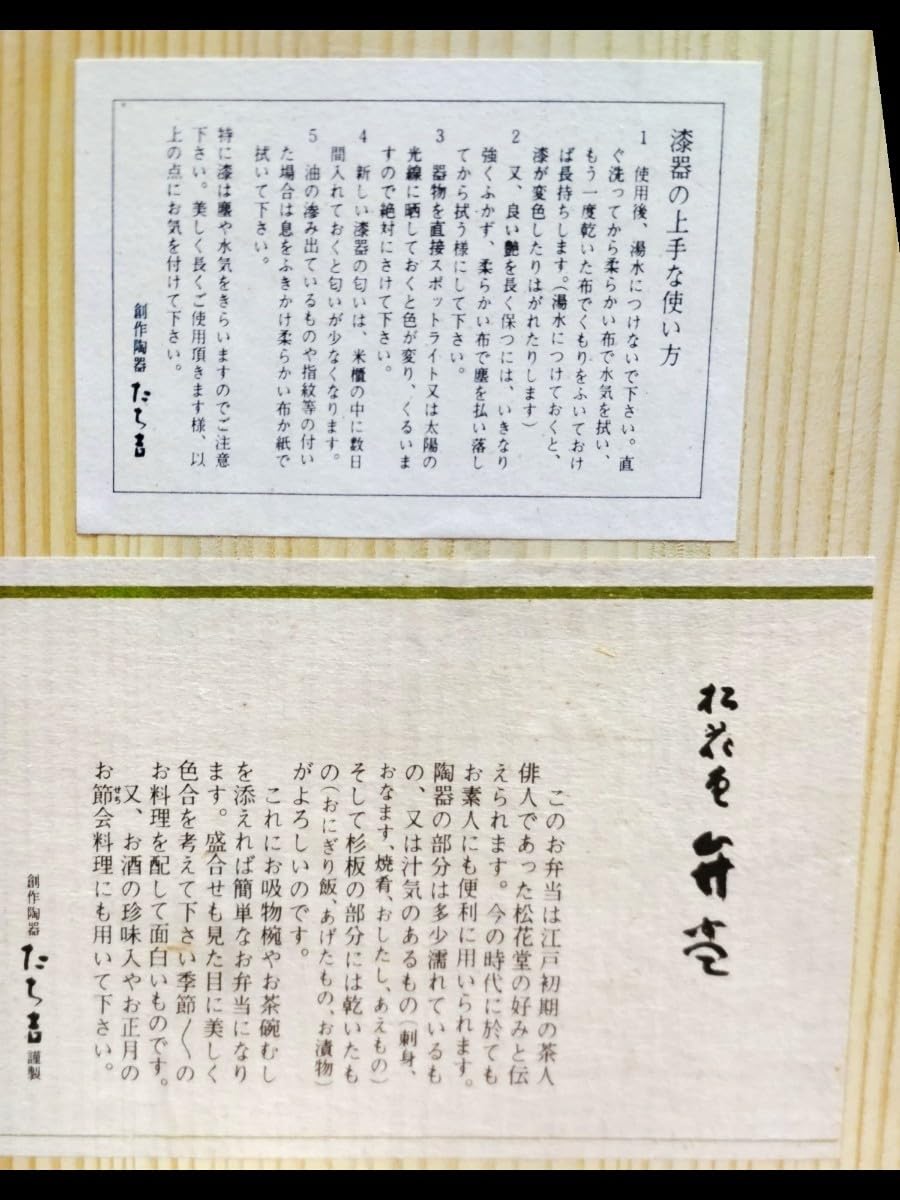 漆器の上手な使い方
1　使用後、湯水につけないで下さい。直
ぐ洗ってから柔らかい布で水気を拭い、
もう一度乾いた布でくもりをふいておけ
ば長持ちします。(湯水につけておくと、
漆が変色したりはがれたりします)
2　又、良い艶を長く保つには、いきなり
強くふかず、柔らかい布で塵を払い落し
てから拭う様にして下さい。
3　器物を直接スポットライト又は太陽の
光線に晒しておくと色が変り、くるいま
すので絶対にさけて下さい。
4　新しい漆器の匂いは、米櫃の中に数日
間入れておくと匂いが少なくなります。
5　油の滲み出ているものや指紋等の付い
た場合は息をふきかけ柔らかい布か紙で
拭いて下さい。
特に漆は塵や水気をきらいますのでご注意
下さい。美しく長くご使用頂きます様、以
上の点にお気を付けて下さい。
創作陶器 たち吉
松花堂 弁当
このお弁当は江戸初期の茶人
俳人であった松花堂の好みと伝
えられます。今の時代に於ても
お素人にも便利に用いられます。
陶器の部分は多少濡れているも
の、又は汁気のあるもの(刺身、
おなます、焼肴、おしたし、あえもの)
そして杉板の部分には乾いたも
の(おにぎり飯、あげたもの、お漬物)
がよろしいのです。
これにお吸物椀やお茶碗むし
を添えれば簡単なお弁当になり
ます。盛合せも見た目に美しく
色合を考えて下さい季節〱の
お料理を配して面白いものです。
又、お酒の珍味入やお正月の
お節会料理にも用いて下さい。
創作陶器 たち吉 謹製